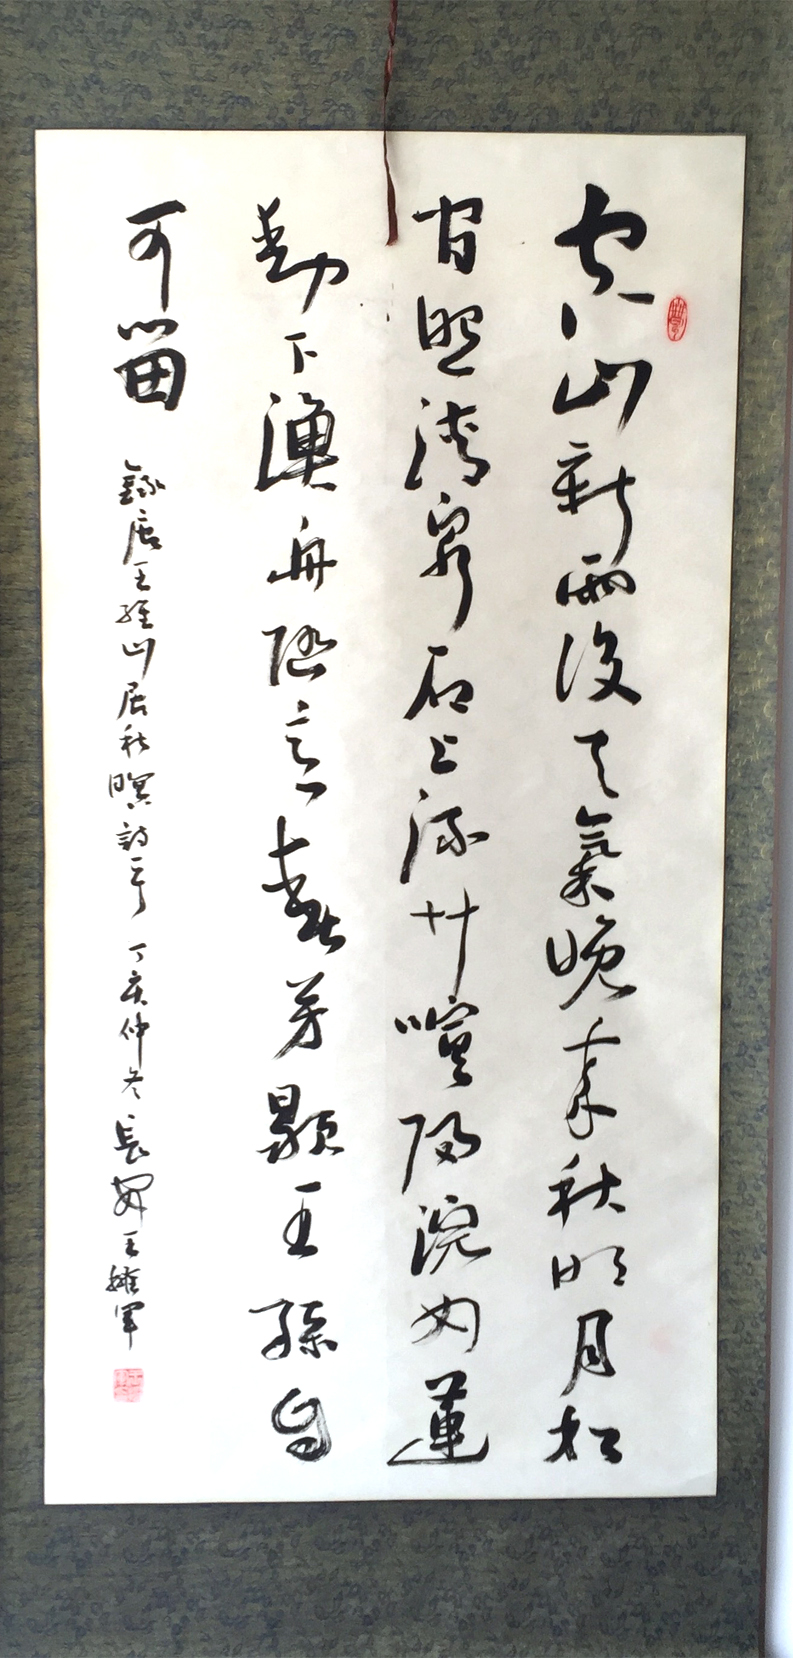 空山新雨後天氣晚來秋明月松
間照清泉石上流竹喧歸浣女蓮
動下漁舟隨意春芳歇王孫自
可留
錄唐王維山居秋暝詩一首 丁亥仲冬 長安王擁軍